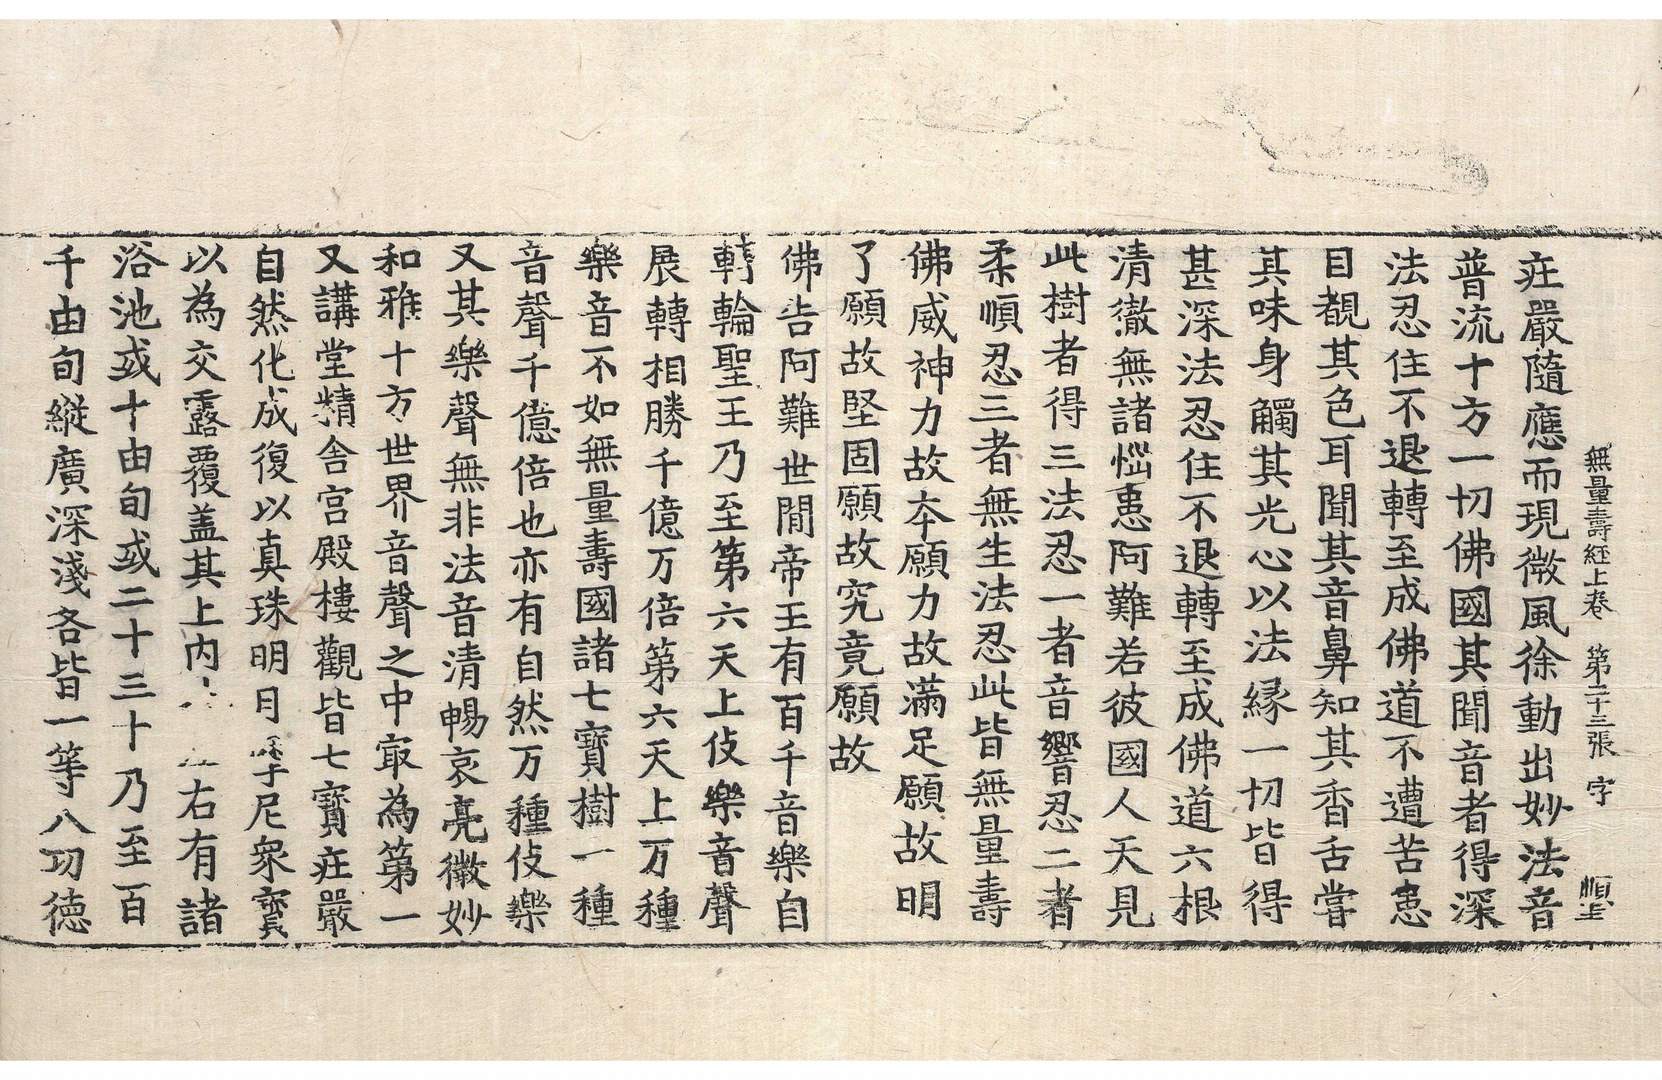 無量壽經上卷 第二十三張 字 順生
莊嚴隨應而現微風徐動出妙法音
普流十方一切佛國其聞音者得深
法忍住不退轉至成佛道不遭苦患
目覩其色耳聞其音鼻知其香舌嘗
其味身觸其光心以法縁一切皆得
甚深法忍住不退轉至成佛道六根
清徹無諸惱患阿難若彼國人天見
此樹者得三法忍一者音響忍二者
柔順忍三者無生法忍此皆無量壽
佛威神力故本願力故滿足願故明
了願故堅固願故究竟願故
佛告阿難世間帝王有百千音樂自
轉輪聖王乃至第六天上伎樂音聲
展轉相勝千億万倍第六天上万種
樂音不如無量壽國諸七寶樹一種
音聲千億倍也亦有自然万種伎樂
又其樂聲無非法音清暢哀亮微妙
和雅十方世界音聲之中㝡為第一
又講堂精舍宮殿樓觀皆七寶莊嚴
自然化成復以真珠明月摩尼衆寶
以為交露覆盖其上内右有諸
浴池或十由旬或二十三十乃至百
千由旬縱廣深淺各皆一等八功德